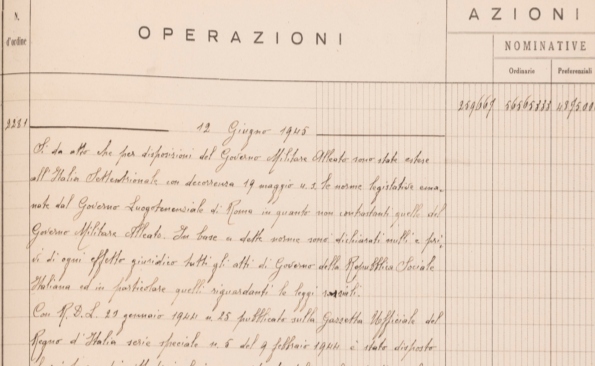 N.
d'ordine
OPERAZIONI
AZIONI
NOMINATIVE
Ordinarie
Preferenziali
259667 56565338 4895.00
2251
12 Giugno 1945
Si da atto che per disposizioni del Governo Militare Alleato sono state estese
all'Italia Settentrionale con decorrenza 19 maggio u.s. le norme legislative ema-
nate dal Governo Luogotenenziale di Roma in quanto non contrastanti quelle del
Governo Militare Alleato. In base a dette norme sono dichiarati nulli e pri-
vi di ogni effetto giuridico tutti gli atti di Governo della Repubblica Sociale
Italiana ed in particolare quelli riguardanti le leggi razziali.
Con R.D.L. gennaio 1944 n. 25 pubblicato sulla Gazzetta Ufficiale del
Regno d'Italia serie speciale n. 5 del 9 febbraio 1944 è stato disposto